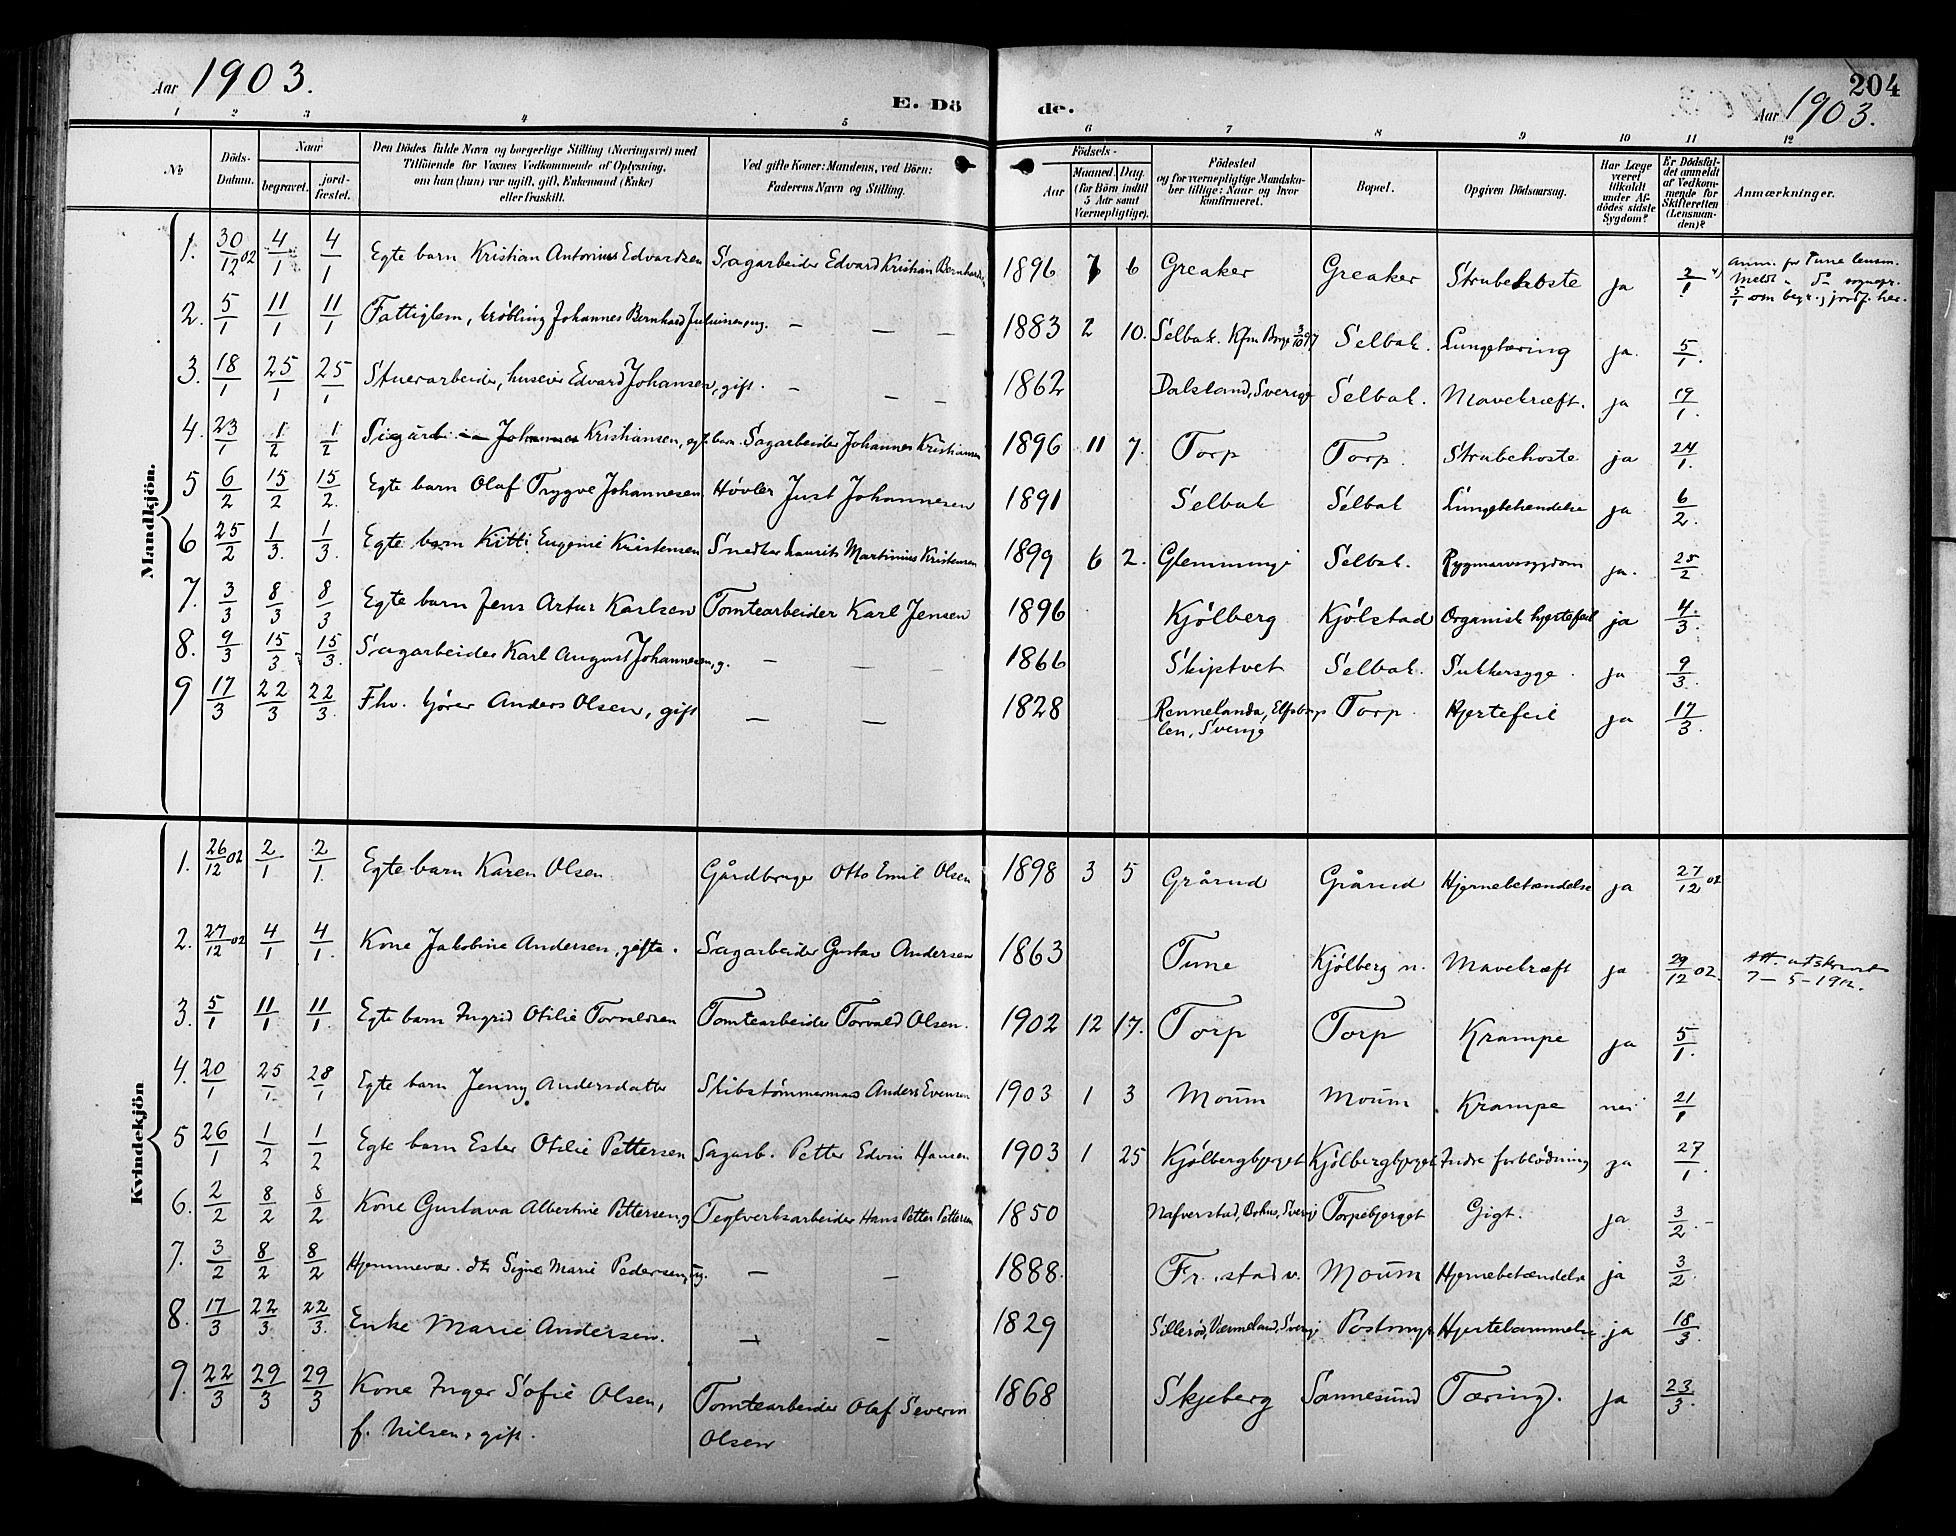 Aar 1903.
E. Dö de.
204
Aar 1903.
1 2 3 4 5 6 7 8 9 10 11 12
No
Döds-Datum.
Naar
begravet.
jord-fæstet.
Den Dödes fulde Navn og borgerlige Stilling (Næringsvei) med
Tilföiende for Voxnes Vedkommende af Oplysning,
om han (hun) var ugift, gift, Enkemand (Enke)
eller fraskilt.
Ved gifte Koner: Mandens, ved Börn:
Faderens Navn og Stilling.
Födsels-
Aar
Maaned. Dag.
(for Börn indtil
5 Aar samt
Værnepligtige).
Födested
og for værnepligtige Mandska-
ber tillige: Naar og hvor
konfirmeret.
Bopæl.
Opgiven Dödsaarsag.
Har Læge
været
tilkaldt
under Af-
dödes sidste
Sygdom?
Er Dödsfal-
det anmeldt
af Vedkom-
mende for
Skifteretten
(Lensman-
den)?
Anmærkninger.
Mandkjön.
1. 30/12 02 4/1 4/1 Egte barn Kristian Antonius Edvardsen Sagarbeider Edvard Kristian 1896 7 6 Greaker Greaker Strubehoste ja 2/1 Anm. for Tune lensm.
5/1 som begr. j jordf. her.
2. 5/1 11/1 11/1 Fattiglem, krøbling Johannes Bernhard ug. — — — 1883 2 10. Selbak. Kfm Borge 3/10 97 Selbak. Lungetæring ja. 5/1.
3. 18/1 25/1 25/1 Stuerarbeider, huseier Edvard Johansen, gift. — — — 1862 Dalsland, Sverige Selbak. Mavekræft. ja 19/1.
4. 23/1 1/2 1/2 Sigurd Johannes Kristiansen, egt. barn. Sagarbeider Johannes Kristiansen 1896 11 7. Torp Torp. Strubehoste ja 24/1.
5 6/2 15/2 15/2. Egte barn Olaf Trygve Johannesen Høvler Just Johannesen 1891 Selbak Selbak Lungebetændelse ja 6/2.
6 25/2 1/3. 1/3. Egte barn Kitti Eugenie Kristensen Snedker Laurits Martinius Kristensen 1899 6 2. Glemminge Selbak. Rygmarvssygdom ja. 25/2
7. 3/3 8/3 8/3 Egte barn Jens Artur Karlsen Tomtearbeider Karl Jensen 1896 Kjølberg Kjølstad Organisk hjertefeil ja 4/3.
8. 9/3 15/3 15/3. Sagarbeider Karl August Johannesen, g. — — — 1866 Skiptvet Selbak. Sukkersyge. ja 9/3.
9 17/3 22/3 22/3. Fhv. kjører Anders Olsen, gift — — 1828 Rennelanda, Elfsborgs
len, Sverige Torp. Hjertefeil ja 17/3.
Kvindekjön
1. 26/12 02 2/1 2/1. Egte barn Karen Olsen Gårdbruger Otto Emil Olsen 1898 3 5 Grårud Grårud Hjernebetændelse ja 27/12 02
2. 27/12 02 4/1 4/1. Kone Jakobine Andersen, gifte. Sagarbeider Gustav Andersen 1863 Tune Kjølberg n. Mavekræft ja 29/12 02. Att. utskrevet
7-5-19
3. 5/1 11/1 11/1. Egte barn Ingrid Otilie Torvaldsen Tomtearbeider Torvald Olsen. 1902 12 17. Torp Torp Krampe ja 5/1.
4. 20/1 25/1. 28/1 Egte barn Jenny Andersdatter Skibstømmermand Anders Evensen 1903 1 3 Moum Moum Krampe nei 21/1
5 26/1 1/2 1/2 Egte barn Ester Otilie Pettersen Sagarb. Petter Edvin Hansen 1903 1 25 Kjølbergbjerget Kjølbergbjerget Indre forblødning ja 27/1.
6. 2/2 8/2 8/2 Kone Gustava Albertine Pettersen, g Teglverksarbeider Hans Petter Pettersen 1850 Nafverstad, Bohus, Sverige Torpebjerget Gigt. ja 3/2.
7. 3/2 8/2 8/2 Hjemmevær. dtr Signe Marie Pedersen, ug. — — 1888. Fr. stad v. Moum Hjernebetændelse ja 3/2.
8. 17/3 22/3 22/3. Enke Marie Andersen. — — 1829 Sillerød, Værmeland, Sverige Hjertelammelse. ja 18/3.
9. 22/3 29/3 29/3 Kone Inger Sofie Olsen,
f. Nilsen, gift. Tomtearbeider Olaf Severin
Olsen 1868 Skjeberg Sannesund Tæring. ja 23/3.